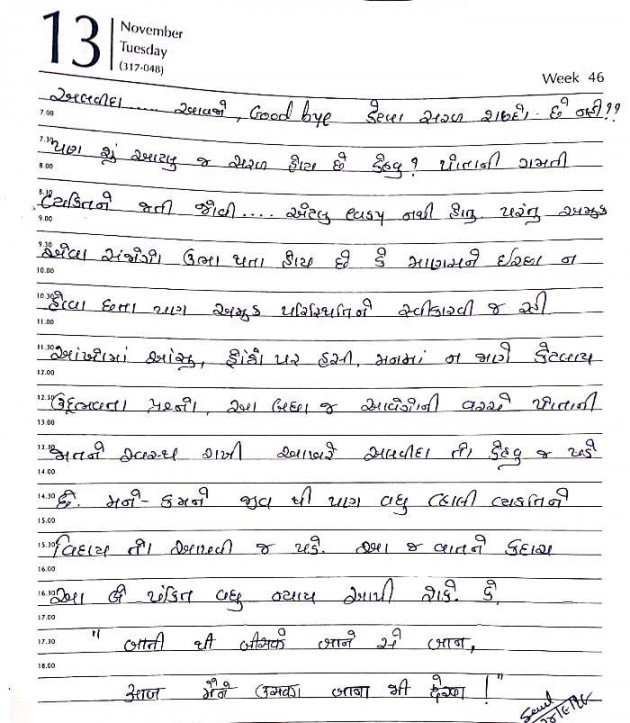 13
November
Tuesday
(317-048)
Week 46
અલવીદા ..... આવજો, Good bye કેટલા સરળ શબ્દો છે નહી??
7.00
7.30 પણ શું આટલુ જ સરળ હોય છે કેહવુ? પોતાની ગમતી
8.00
8.30 વ્યક્તિને જતી જોવી.... એટલુ સહજ નથી હોતુ પરંતુ અમુક
9.00
9.30 એવા સંજોગો ઉભા થતા હોય છે કે માણસને ઈચ્છા ન
10.00
10.30 હોવા છતા પણ અમુક પરિસ્થિતિને સ્વીકારવી જ રહી
11.00
11.30 આંખોમાં આંસુ, હોંઠો પર હસી, મનમાં ન જાણે કેટલાય
12.00
12.30 ઉદ્દભવતા પ્રશ્નો, આ બધા જ આવેગોની વચ્ચે પોતાની
13.00
13.30 જાતને સ્વસ્થ રાખી આખરે અલવીદા તો કેહવુ જ પડે
14.00
14.30 છે. મને-કમને જીવ થી પણ વધુ વ્હાલી વ્યક્તિને
15.00
15.30 વિદાય તો આપવી જ પડે. આ જ વાતને કદાચ
16.00
16.30 આ બે પંક્તિ વધુ ન્યાય આપી શકે કે,
17.00
17.30 " जाती थी जीसके जाने से जान,
18.00
आज मैंने उसका जाना भी देखा !"